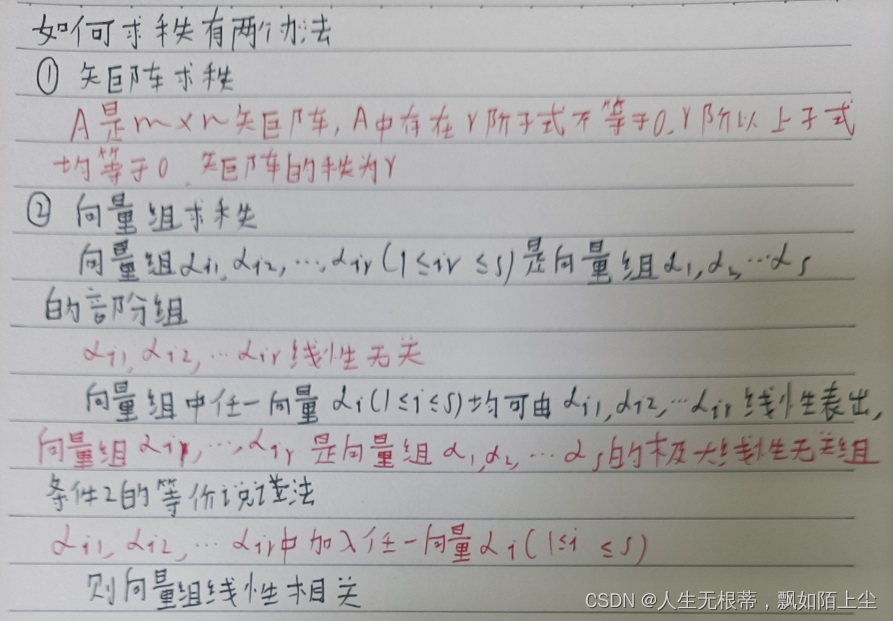 如何求秩有两个办法
① 矩阵求秩
A是m×n矩阵,A中存在r阶子式不等于0,r阶以上子式
均等于0 矩阵的秩为r
② 向量组求秩
向量组αi1,αi2,…,αir(1≤ir≤s)是向量组α1,α2,…αs
的部分组
αi1,αi2,…αir线性无关
向量组中任一向量αi(1≤i≤s)均可由αi1,αi2,…αir线性表出,
向量组αi1,…,αir是向量组α1,α2,…αs的极大线性无关组
条件2的等价说法
αi1,αi2,…αir中加入任一向量αi(1≤i≤s)
则向量组线性相关
CSDN @人生无根蒂,飘如陌上尘